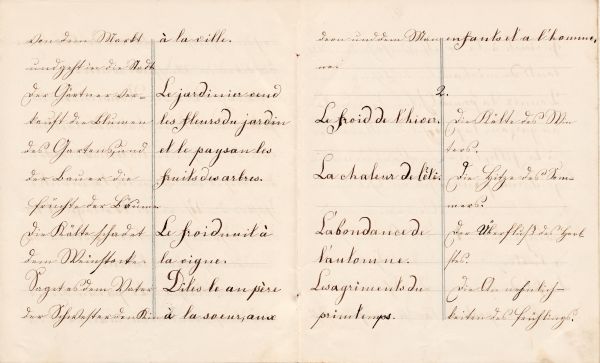 von dem Markt
und geht in die Stadt
Der Gärtner ver-
kauft die Blumen
des Gartens und
der Bauer die
Früchte der Bäume
Die Kälte schadet
dem Weinstocke.
Saget es dem Vater
der Schwester den Kin
à la ville.
Le jardinier vend
les fleurs du jardin
et le paysan les
fruits des arbres.
Le froid nuit à
la vigne.
Dites le au père
à la soeur, aux
dern und dem Man
ne.
enfants et a l'homme.
2.
Le froid de l'hiver.
La chaleur de l'été.
L'abondance de
l'automne.
Les agriments du
printemps.
Die Kälte des Win-
ters.
Die Hitze des Som-
mers.
Der Überfluß des Herb
stes.
Die Annehmlich-
keiten des Frühlings.